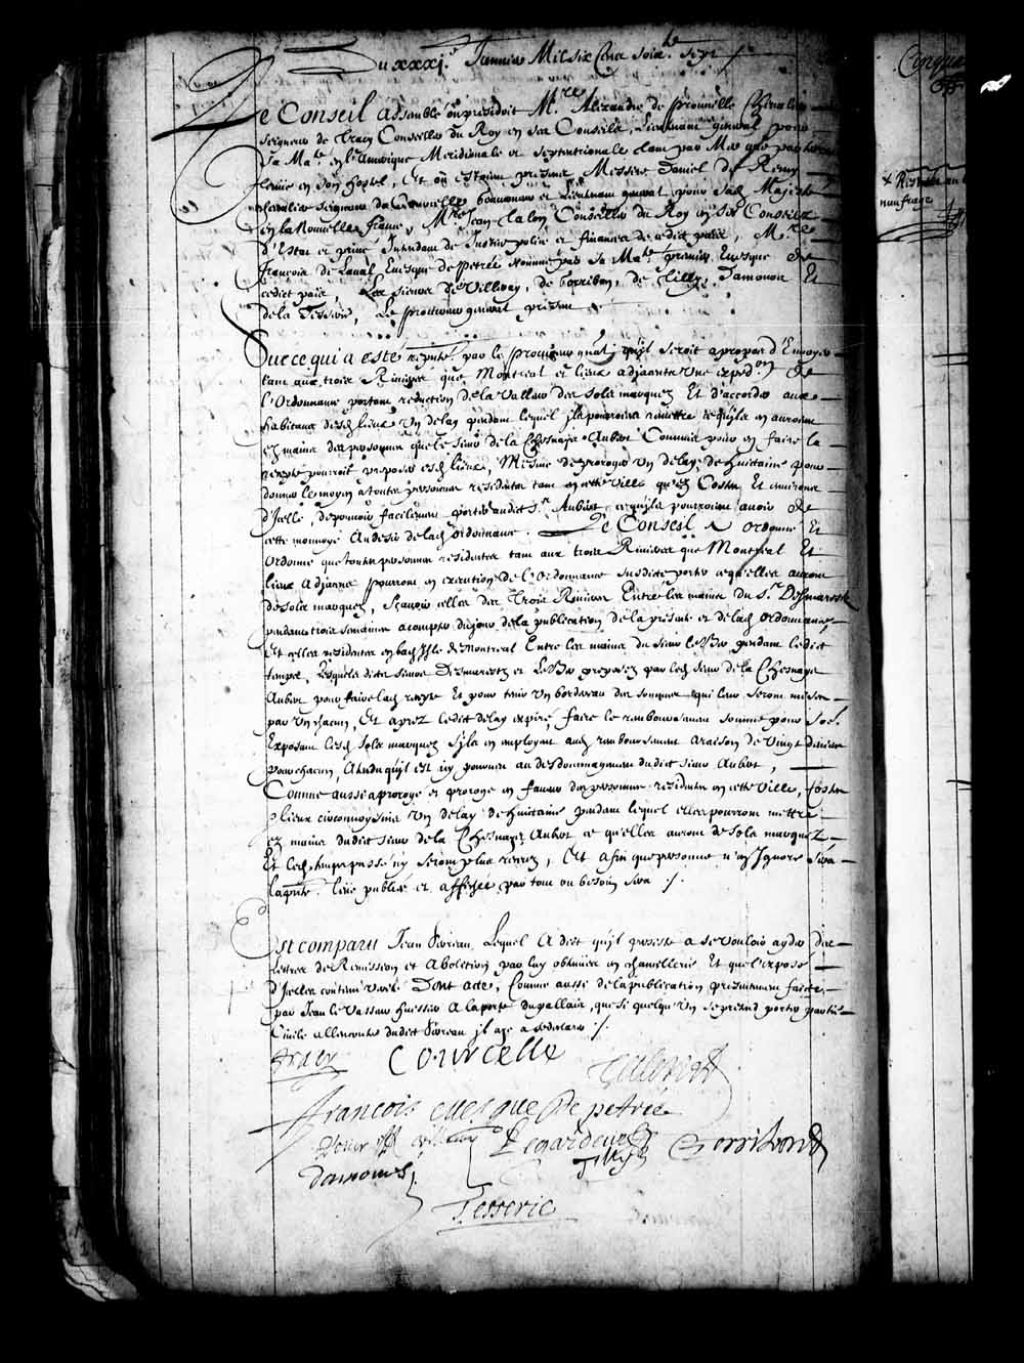 Du xxxj.e Januier Mil six Cens soix.te sept
Le Conseil assemblé ou presidoit M.re Alexandre de prouuille Cheualier
seigneur de Tracy Conseiller du Roy en ses Conseils, Lieutenant general pour
sa Ma.té en l'amerique Meridionale et septentrionale tant par Mer que par terre
tenüe en son hostel, Et où estoient presens Messire Daniel de Remy
cheualier seigneur de Courcelle gouuerneur et Lieutenant general pour sad Majesté
en la Nouuelle france, M.re Jean talon Conseiller du Roy en ses Conseils
d'Estat et priué Intendant de Justice police et finances de cedict païs, M.re
francois de Laual Euesque de petrée nommé par sa Ma.té premier Euesque de
cedict païs, Les sieurs de Villeray, de Gorribon, de Tilly, Damours Et
de la Tesserie, Le procureur general present
Sur ce qui a esté represté par le procureur gnal qu'il seroit apropos d'Enuoyer
tant aux trois Riuieres que Montreal et lieux adjacents Une expedon de
l'ordonnance portant reduction de la Valleur des sols marquez Et d'accorder aux
habitans desd lieux Un delay pendant lequel jls pourroient remettre ce qu'jls en auroient
ez mains des personnes que le sieur de la Chesnaye Aubert Commis pour en faire la
recepte pourroit proposer esd lieux, Mesme de proroger Un delay de huictaine pour
donner le moyen a toutes personnes residentes tant en cette Ville qu'ez Costes Et enuirons
d'Icelle, de pouuoir facilement porter audict S.r Aubert ce qu'jls pourroient auoir de
cette monnoye Au desir de lad ordonnance. Le Conseil A ordonné Et
ordonne que toutes personnes residentes tant aux trois Riuieres que Montreal Et
lieux adjacens pourront en execution de l'ordonnance susdicte porter ce qu'elles auront
de sols marquez, sçauoir celles des Trois Riuieres Entre les mains du S.r Desmarests
pendant trois semaines a compter du jour de la publication de la presente et de lad ordonnance,
Et celles residentes en lad Isle de Montreal Entre les mains du sieur le Ber pendant ledict
temps, Lesquels dicts sieurs Desmarests et LeBer proposez par led sieur de la Chesnaye
Aubert pour faire lad recepte Et pour tenir Un bordereau des sommes qui leur seront mises
par Un chacun, Et aprez ledict delay expiré, faire le remboursement
Exposant lesd sols marquez s'jls en employent aud remboursement a raison de Vingt deniers
pour chacun, Attendu qu'jl est jcy pourueu au desdommagement dudict sieur Aubert,
Comme aussi a prorogé et proroge en faueur des personnes residentes en cette Ville, Costes
lieux circonuoysins Un delay de huictaine pendant lequel elles pourront mettre
ez mains dudict sieur de la Chesnaye Aubert ce qu'elles auront de sols marquez
Et led temps passé n'y seront plus receus, Et afin que personne n'en Ignore sera
la pnte. leüe publiée et affichée par tout ou besoin sera ./.
Est comparu Jean Lequel A dict qu'jl persiste a se vouloir ayder des
Lettres de Remission et Abolition par luy obtenües en chancellerie Et que l'exposé
d'Icelles contient verité Dont acte, Comme aussi de la publication presentement faicte
par Jean le Vasseur huissier A la porte du pallais, que si quelqu'Un se pretend porter partie
Ciuile allencontre dudict jl aye a le declarer ./.
Tracy Courcelle
Talon
francois euesque De petrée
Rouer de Villeray Legardeur de Tilly Gorribon
damours
Tesserie